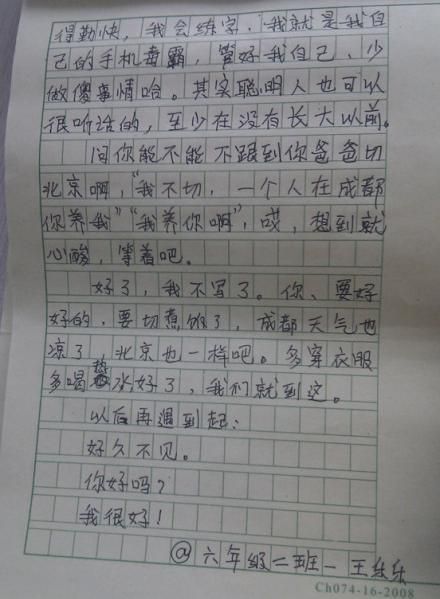 得勤快，我会练字，我就是我自
己的手机毒霸，管好我自己、少
做傻事情哈。其实聪明人也可以
很听话的，至少在没有长大以前。
问你能不能不跟到你爸爸切
北京啊，“我不切，一个人在成都
你养我”“我养你啊”，哎，想到就
心酸，等着吧。
好了，我不写了。你、要好
好的，要切煮饭了，成都天气也
凉了，北京也一样吧。多穿衣服
多喝热水好了，我们就到这。
以后再遇到起：
好久不见。
你好吗？
我很好！
@六年级二班－王乐乐
Ch074-16-2008